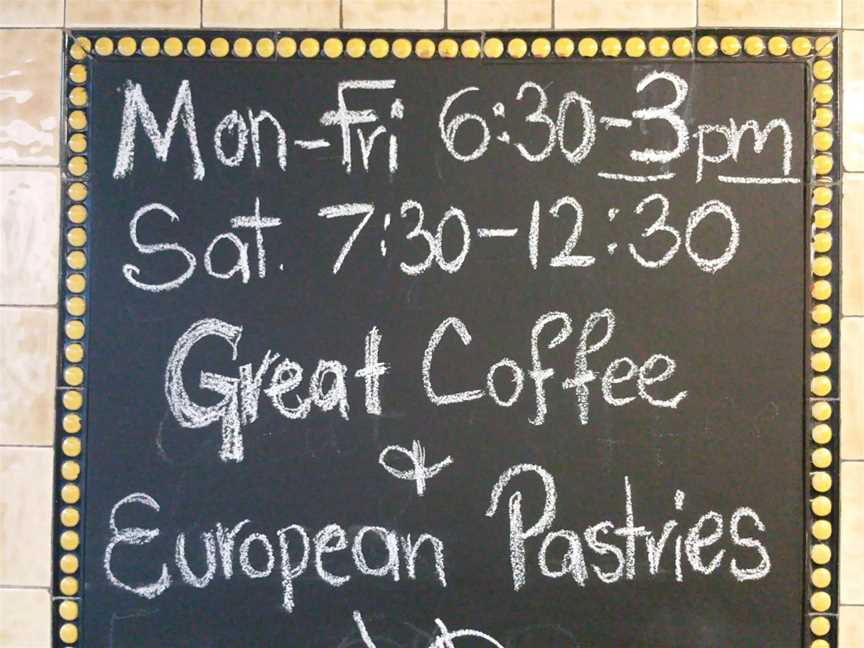 Mon-Fri 6:30-3pm
Sat. 7:30-12:30
Great Coffee
&
European Pastries